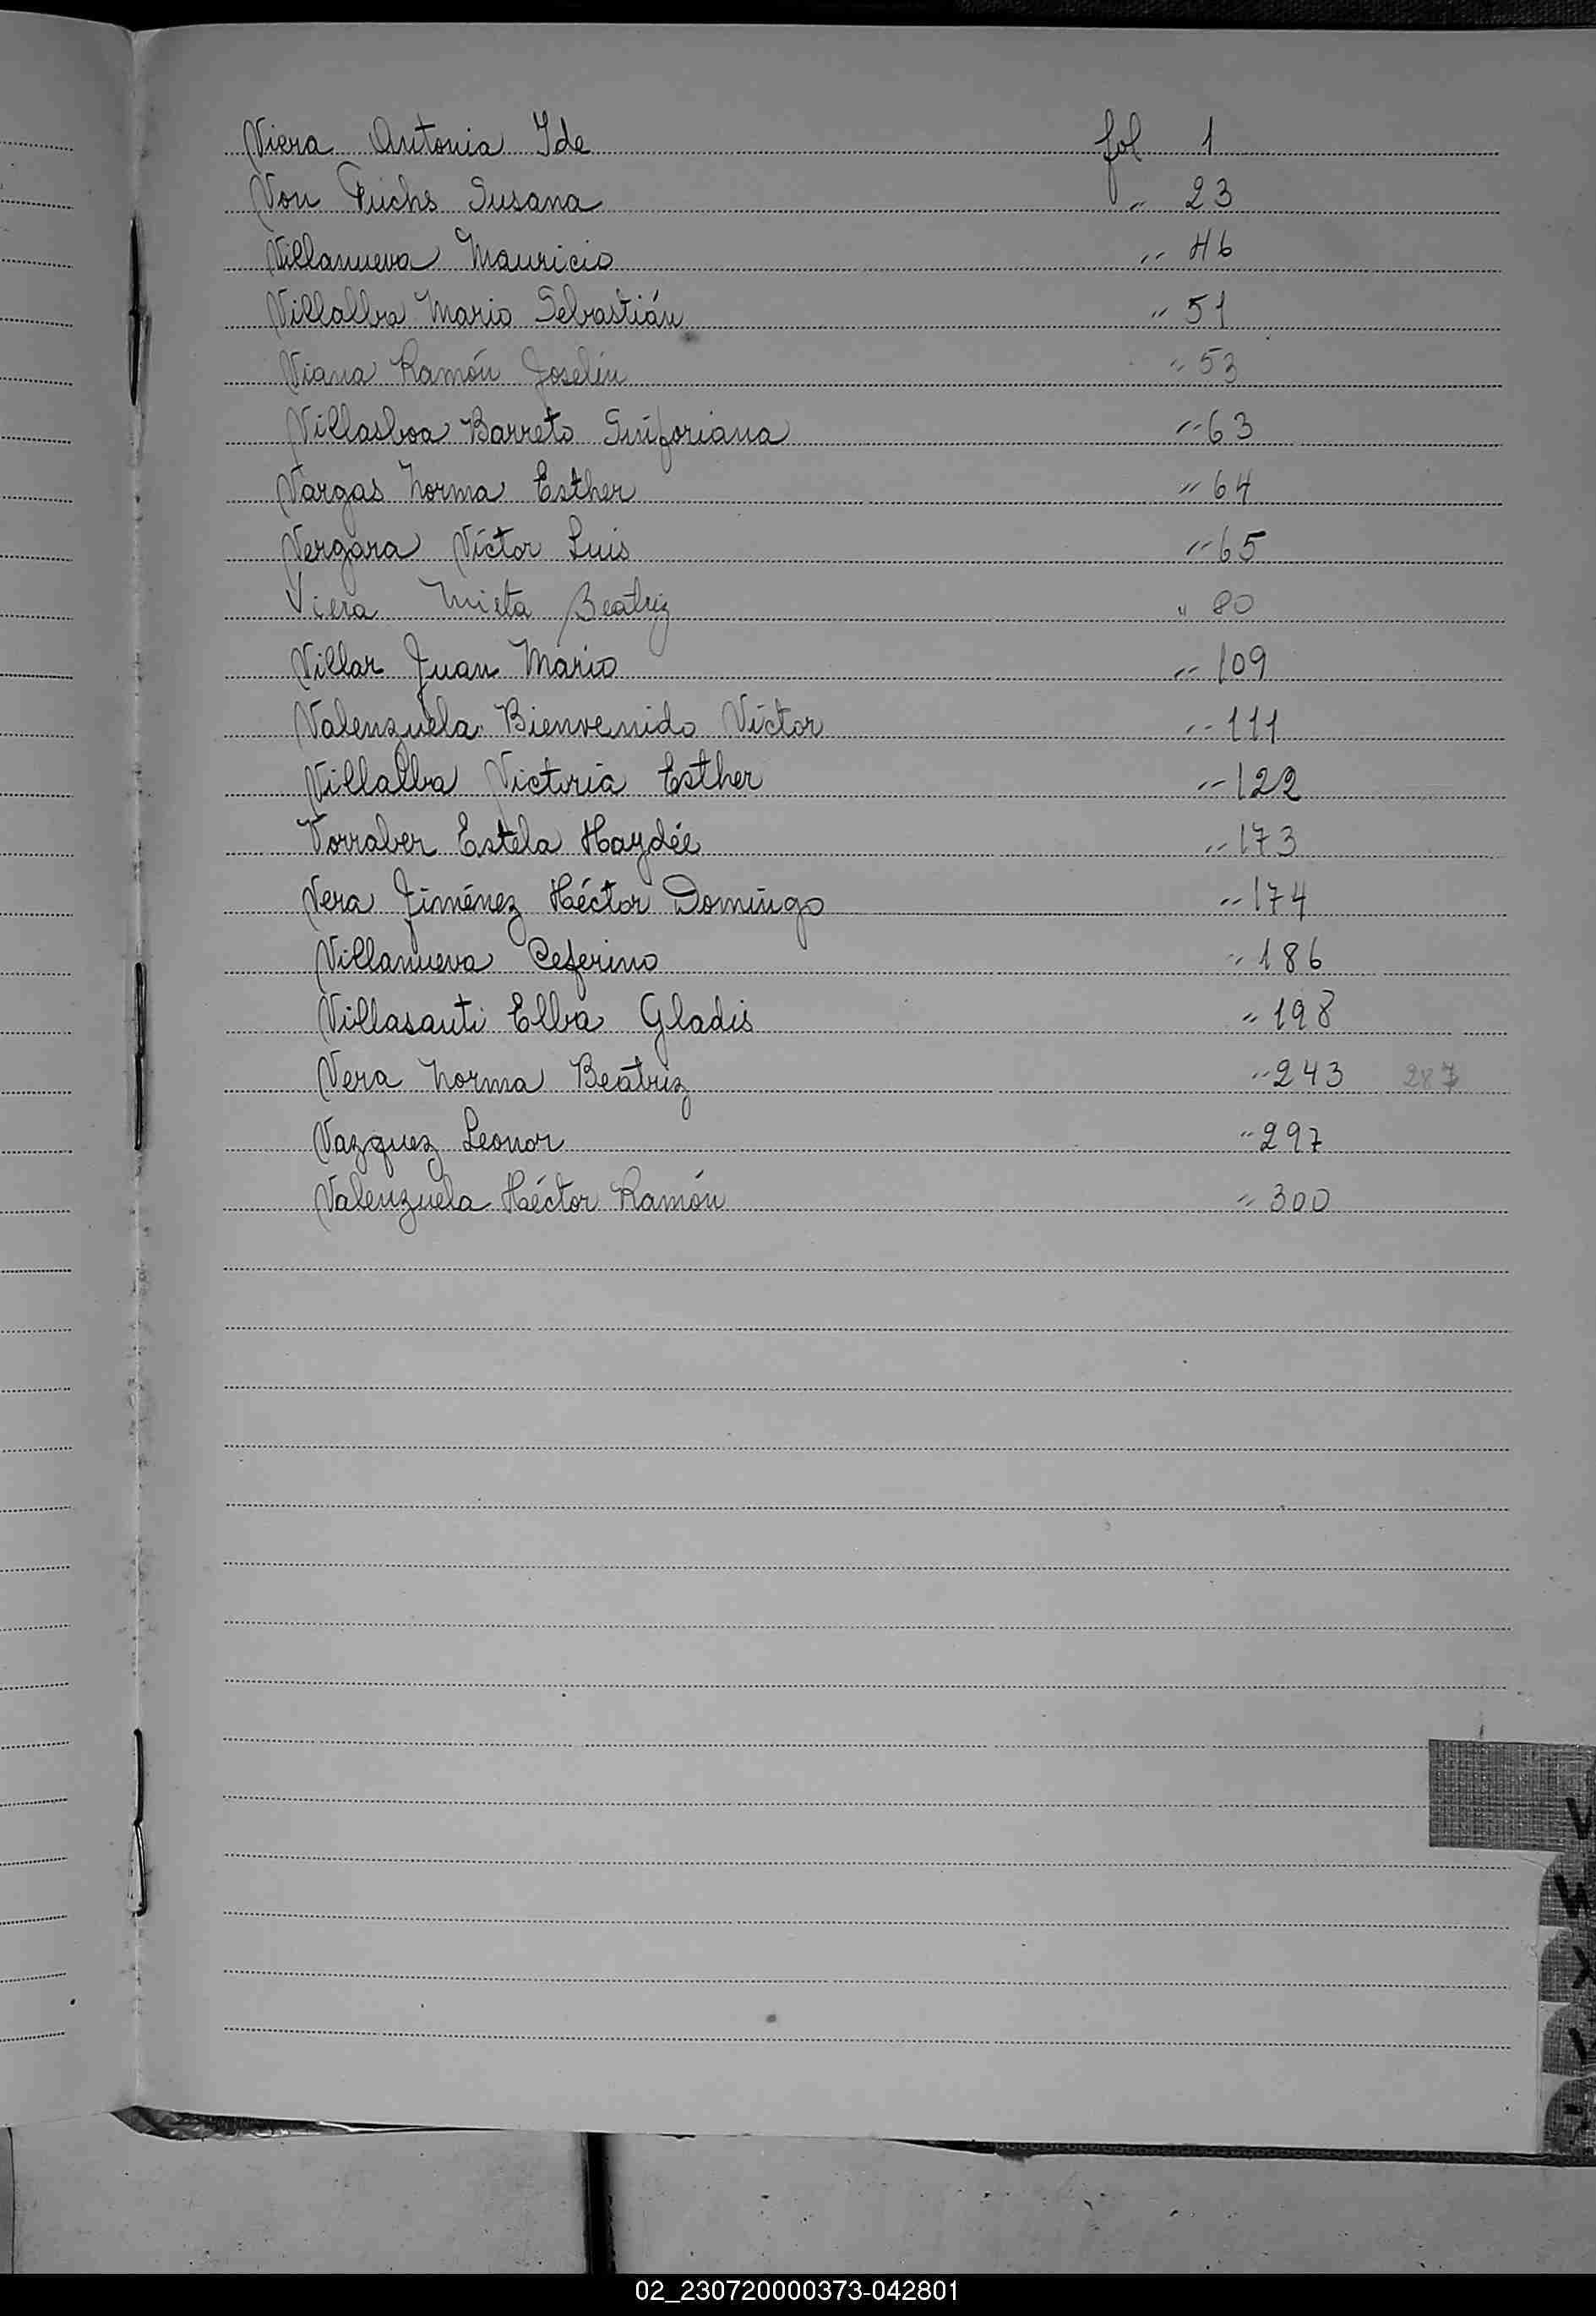 Viera Antonia Ide fol 1
Von Fuchs Susana " 23
Villanueva Mauricio " 46
Villalba Mario Sebastián " 51
Viana Ramón Joselín " 53
Villasboa Barreto Sinforiana " 63
Vargas Norma Esther " 64
Vergara Víctor Luis " 65
Viera Beatriz " 80
Villar Juan Mario " 109
Valenzuela Bienvenido Víctor " 111
Villalba Victoria Esther " 122
Vorraber Estela Haydée " 173
Vera Jiménez Héctor Domingo " 174
Villanueva Ceferino " 186
Villasanti Elba Gladis " 198
Vera Norma Beatriz " 243 287
Vazquez Leonor " 297
Valenzuela Héctor Ramón " 300
V
X
02_230720000373-042801